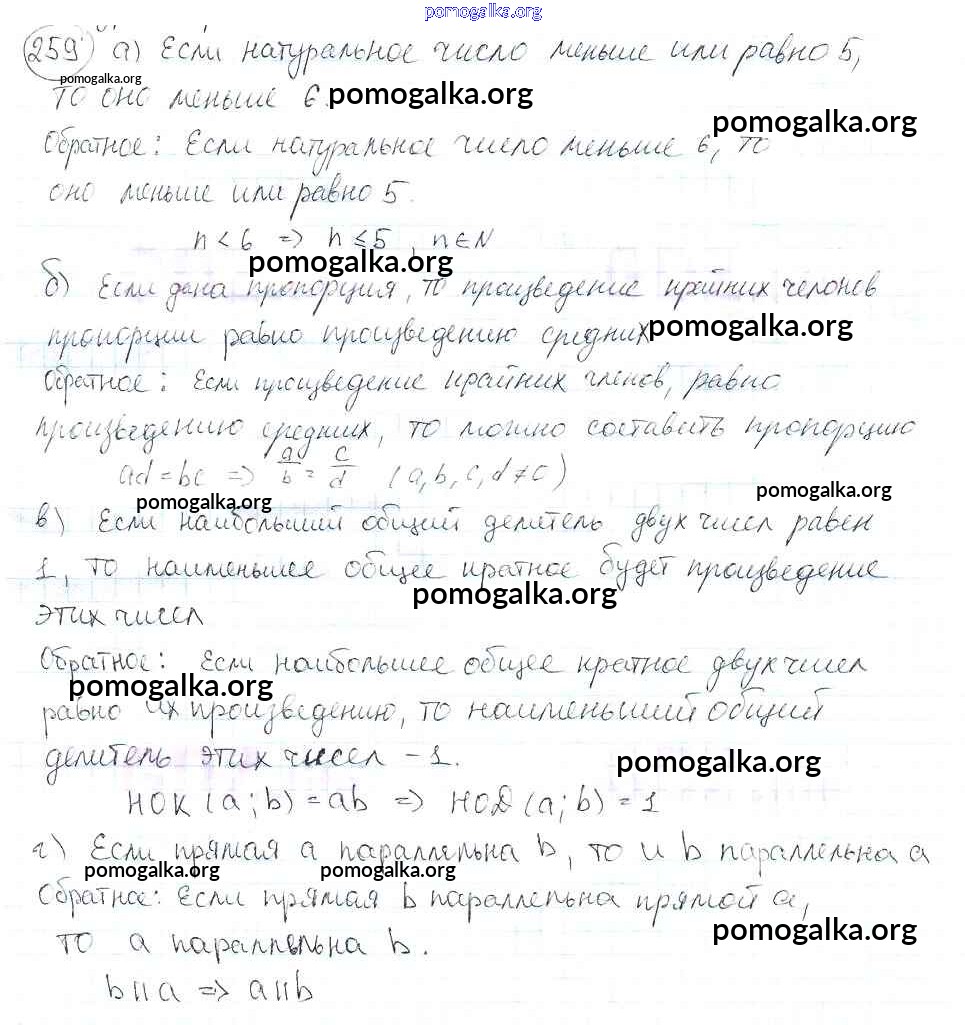 pomogalka.org
259 а) Если натуральное число меньше или равно 5,
pomogalka.org
то оно меньше 6. pomogalka.org
pomogalka.org
Обратное: Если натуральное число меньше 6, то
оно меньше или равно 5.
n < 6 => n ≤ 5, n ∈ N
pomogalka.org
б) Если дана пропорция, то произведение крайних челонов
пропорции равно произведению средних pomogalka.org
Обратное: Если произведение крайних членов, равно
произведению средних, то можно составить пропорцию
ad = bc => a/b = c/d (a, b, c, d ≠ 0)
pomogalka.org pomogalka.org
в) Если наибольший общий делитель двух чисел равен
1, то наименьшее общее кратное будет произведение
pomogalka.org
этих чисел
Обратное: Если наибольшее общее кратное двух чисел
pomogalka.org
равно их произведению, то наименьший общий
делитель этих чисел – 1.
pomogalka.org
НОК (a; b) = ab => НОД (a; b) = 1
г) Если прямая a параллельна b, то и b параллельна a
pomogalka.org pomogalka.org
Обратное: Если прямая b параллельна прямой a,
pomogalka.org
то a параллельна b.
b || a => a || b